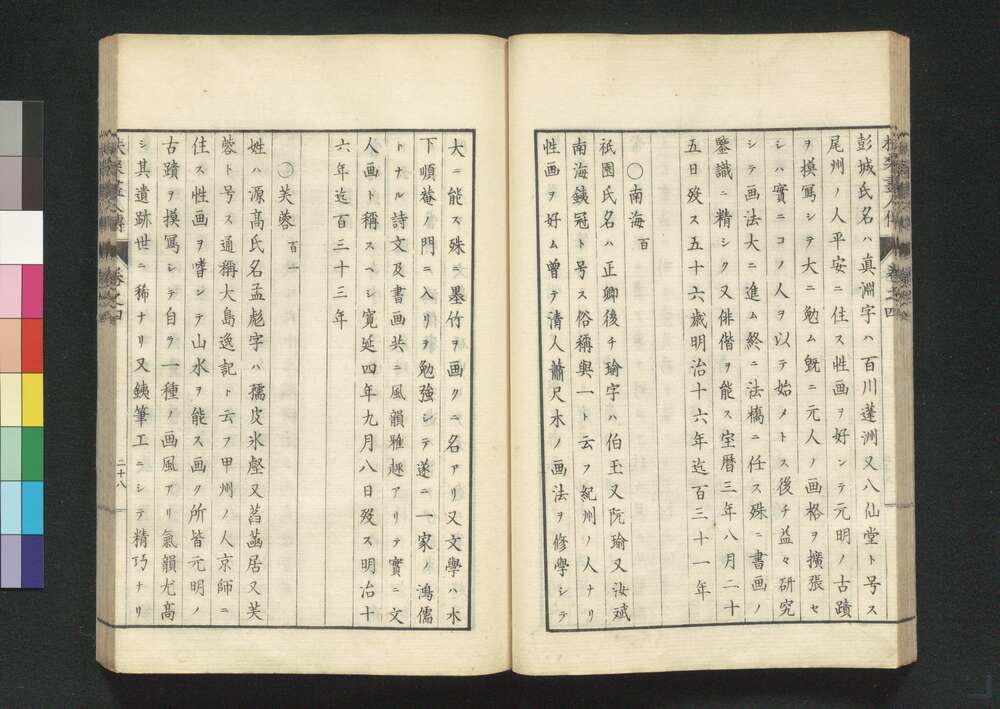 彭城氏名ハ真淵字ハ百川蓬洲又八仙堂ト号ス
尾州ノ人平安ニ住ス性画ヲ好ンテ元明ノ古蹟
ヲ摸写シテ大ニ勉ム既ニ元人ノ画格ヲ擴張セ
シハ實ニコノ人ヲ以テ始メトス後チ益々研究
シテ画法大ニ進ム終ニ法橋ニ任ス殊ニ書画ノ
鑒識ニ精シク又俳偕ヲ能ス宝暦三年八月二十
五日歿ス五十六歳明治十六年迄百三十一年
〇南海 百
祇園氏名ハ正卿後チ瑜字ハ伯玉又阮瑜又汝斌
南海銕冠ト号ス俗稱與一ト云フ紀州ノ人ナリ
性画ヲ好ム曽テ清人蕭尺木ノ画法ヲ修學シテ
卷之四
大ニ能ス殊ニ墨竹ヲ画クニ名アリ又文學ハ木
下順菴ノ門ニ入リテ勉強シテ遂ニ一家ノ鴻儒
トナル詩文及書画共ニ風韻雅趣アリテ實ニ文
人画ト稱スヘシ寛延四年九月八日歿ス明治十
六年迄百三十三年
〇芙蓉 百一
姓ハ源高氏名孟彪字ハ孺皮氷壑又菡萏居又芙
蓉ト号ス通稱大島逸記ト云フ甲州ノ人京師ニ
住ス性画ヲ嗜ンテ山水ヲ能ス画ク所皆元明ノ
古蹟ヲ摸写シテ自ラ一種ノ画風アリ氣韻尤高
シ其遺跡世ニ稀ナリ又銕筆工ニシテ精巧ナリ
卷之四
二十八